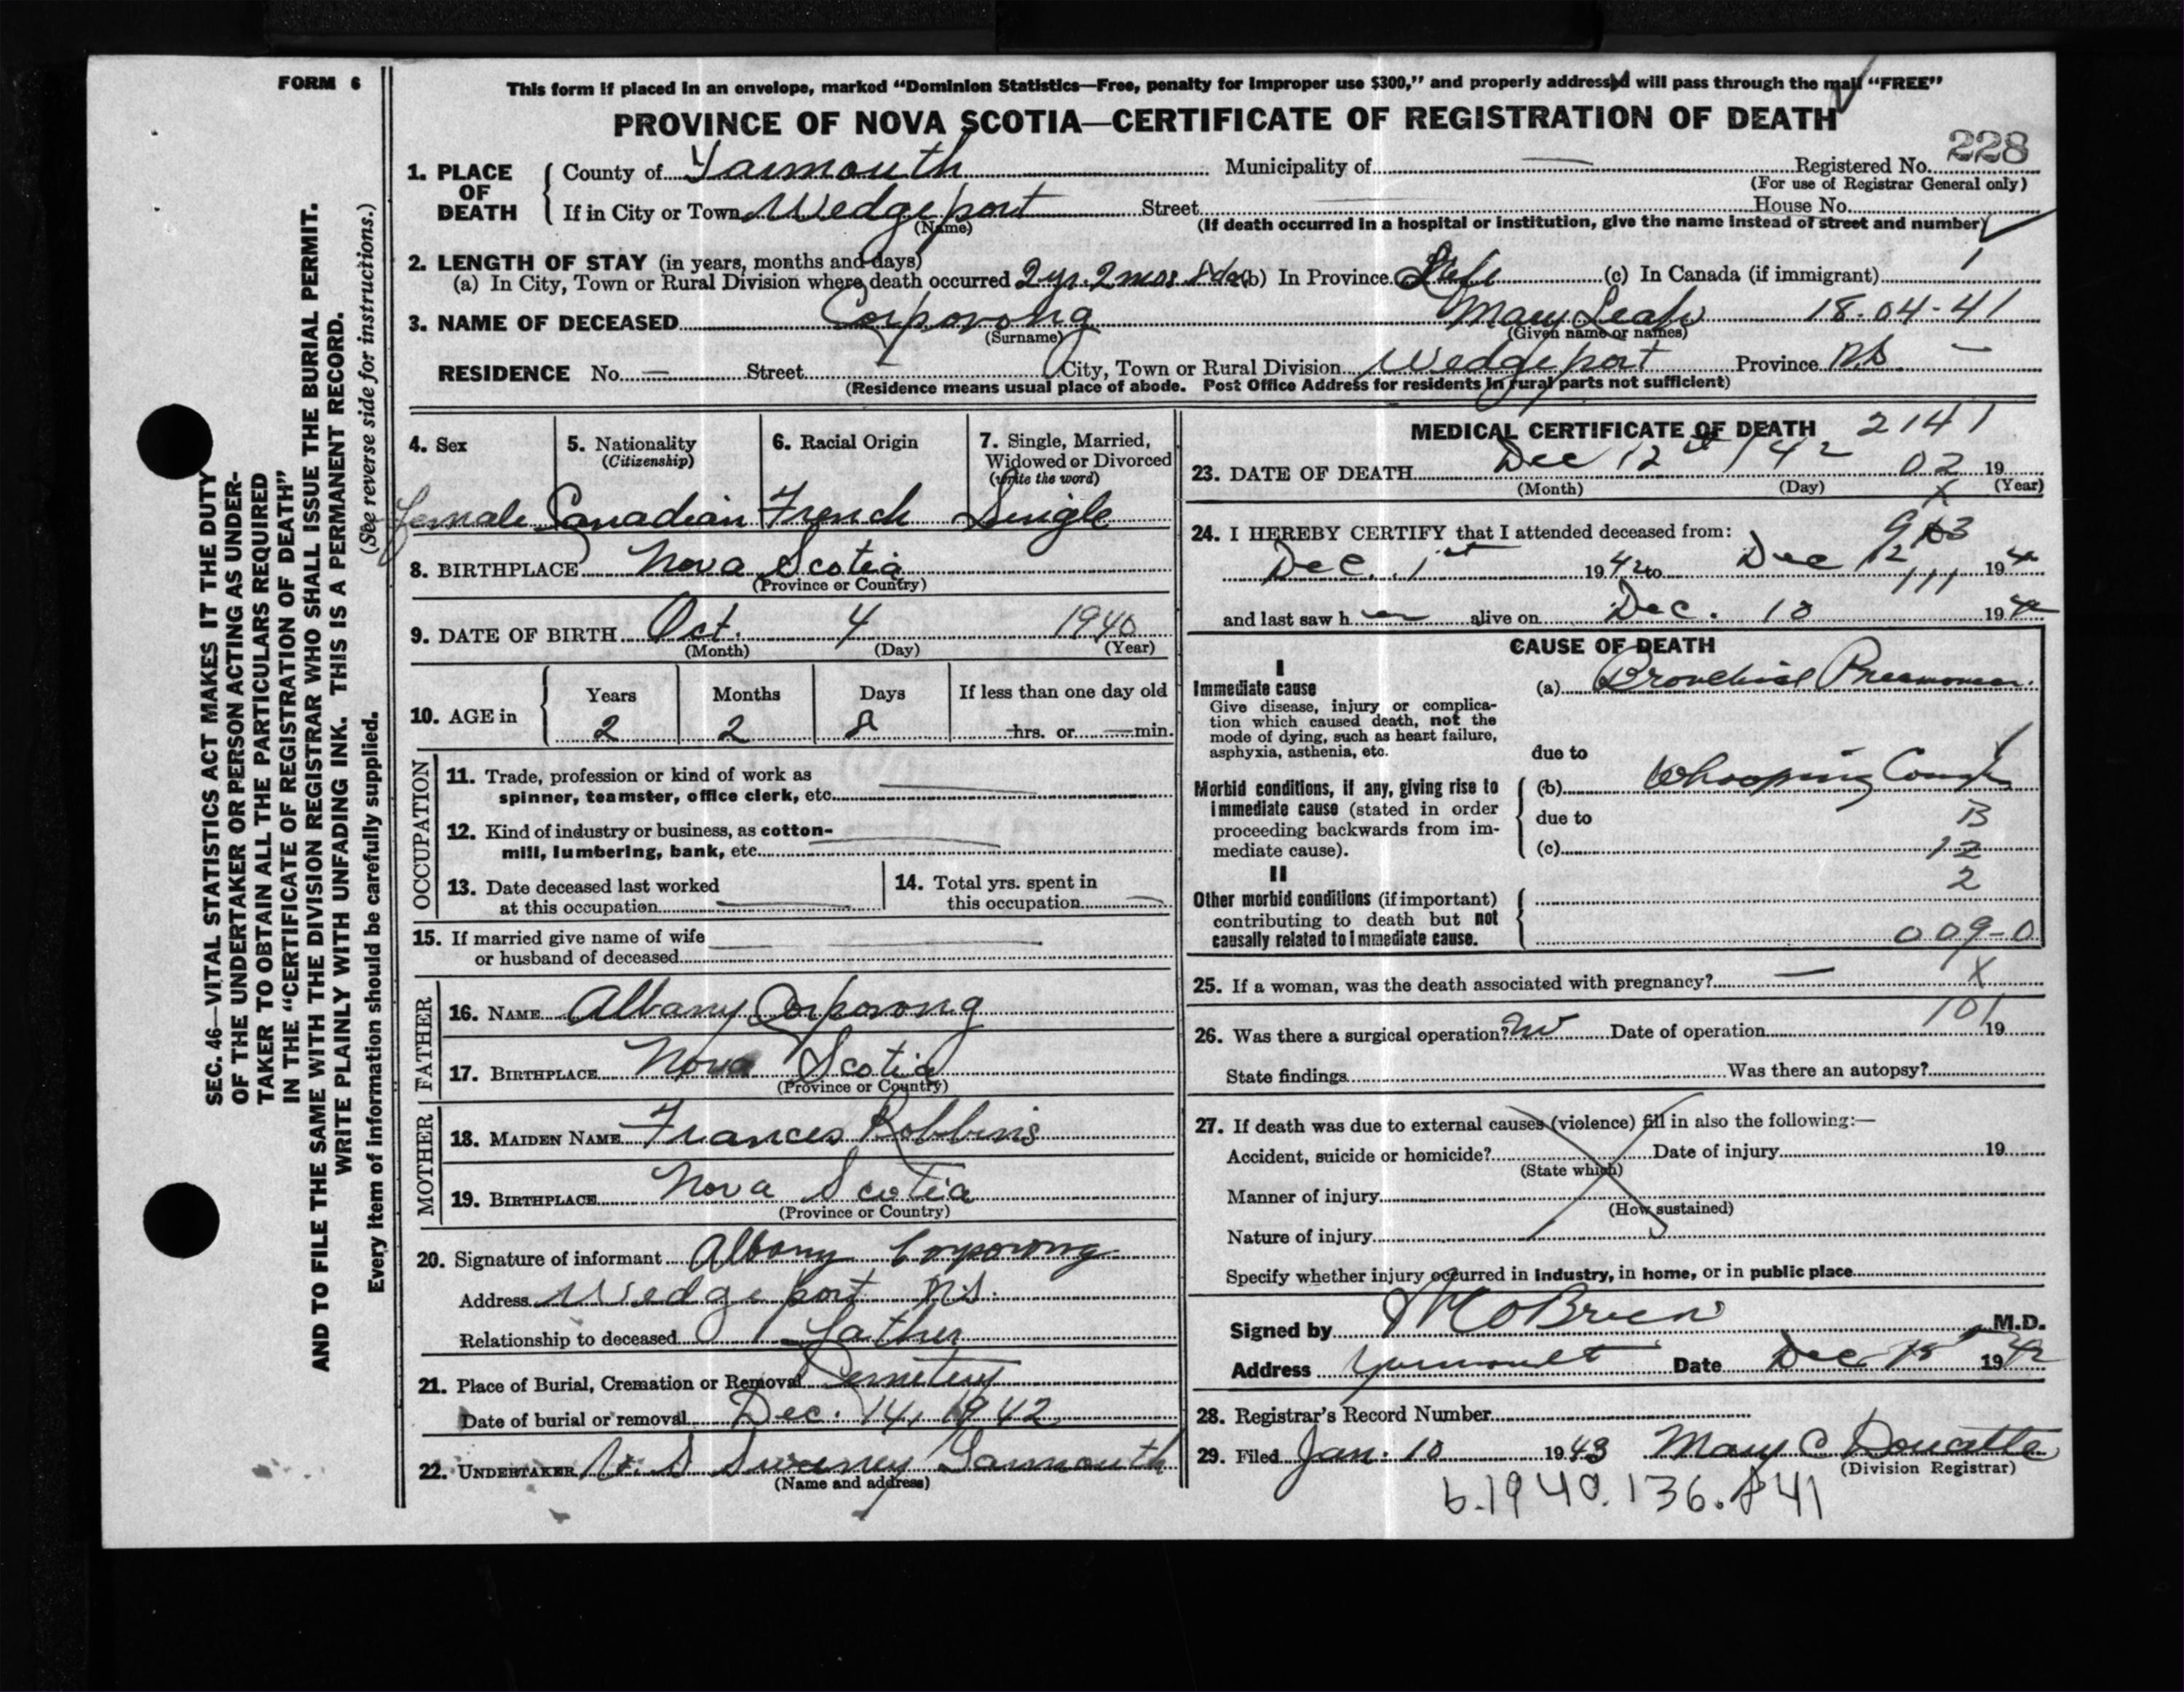 FORM 6
This form if placed in an envelope, marked “Dominion Statistics—Free, penalty for improper use $300,” and properly addressed will pass through the mail “FREE”
PROVINCE OF NOVA SCOTIA—CERTIFICATE OF REGISTRATION OF DEATH
228
1. PLACE OF DEATH County of Yarmouth Municipality of — Registered No.
(For use of Registrar General only)
If in City or Town Wedgeport Street House No.
(Name) (If death occurred in a hospital or institution, give the name instead of street and number)
2. LENGTH OF STAY (in years, months and days)
(a) In City, Town or Rural Division where death occurred 2 yr. 2 mos 8 da (b) In Province Life (c) In Canada (if immigrant)
3. NAME OF DECEASED Corporong Mary Leah 18-04-41
(Surname) (Given name or names)
RESIDENCE No. — Street City, Town or Rural Division Wedgeport Province N.S. —
(Residence means usual place of abode. Post Office Address for residents in rural parts not sufficient)
SEC. 46—VITAL STATISTICS ACT MAKES IT THE DUTY
OF THE UNDERTAKER OR PERSON ACTING AS UNDER-
TAKER TO OBTAIN ALL THE PARTICULARS REQUIRED
IN THE “CERTIFICATE OF REGISTRATION OF DEATH”
AND TO FILE THE SAME WITH THE DIVISION REGISTRAR WHO SHALL ISSUE THE BURIAL PERMIT.
WRITE PLAINLY WITH UNFADING INK. THIS IS A PERMANENT RECORD.
(See reverse side for instructions.)
Every item of information should be carefully supplied.
4. Sex 5. Nationality 6. Racial Origin 7. Single, Married,
(Citizenship) Widowed or Divorced
(write the word)
female Canadian French Single
8. BIRTHPLACE Nova Scotia
(Province or Country)
9. DATE OF BIRTH Oct. 4 1940
(Month) (Day) (Year)
10. AGE in Years Months Days If less than one day old
2 2 8 hrs. or min.
OCCUPATION
11. Trade, profession or kind of work as
spinner, teamster, office clerk, etc.
12. Kind of industry or business, as cotton-
mill, lumbering, bank, etc.
13. Date deceased last worked
at this occupation
14. Total yrs. spent in
this occupation
15. If married give name of wife
or husband of deceased
FATHER
16. NAME Albany Corporong
17. BIRTHPLACE Nova Scotia
(Province or Country)
MOTHER
18. MAIDEN NAME Frances Robbins
19. BIRTHPLACE Nova Scotia
(Province or Country)
20. Signature of informant Albany Corporong
Address Wedgeport N.S.
Relationship to deceased Father
21. Place of Burial, Cremation or Removal Cemetery
Date of burial or removal Dec. 14, 1942
22. UNDERTAKER Sweeney Yarmouth
(Name and address)
MEDICAL CERTIFICATE OF DEATH 2141
23. DATE OF DEATH Dec 12th / 42 02 19
(Month) (Day) (Year)
24. I HEREBY CERTIFY that I attended deceased from:
Dec. 1st 1942 to Dec 12 194
111
and last saw h er alive on Dec. 10 1942
CAUSE OF DEATH
I
Immediate cause
Give disease, injury or complica-
tion which caused death, not the
mode of dying, such as heart failure,
asphyxia, asthenia, etc.
(a) Bronchial Pneumonia
due to
Morbid conditions, if any, giving rise to
immediate cause (stated in order
proceeding backwards from im-
mediate cause).
(b) Whooping Cough
due to B
(c) 12
2
II
Other morbid conditions (if important)
contributing to death but not
causally related to immediate cause.
009-0
25. If a woman, was the death associated with pregnancy? — X
101
26. Was there a surgical operation? No Date of operation 19
State findings Was there an autopsy?
27. If death was due to external causes (violence) fill in also the following:—
Accident, suicide or homicide? Date of injury 19
(State which)
Manner of injury
(How sustained)
Nature of injury
Specify whether injury occurred in industry, in home, or in public place
Signed by O'Brien M.D.
Address Yarmouth Date Dec 1942
28. Registrar's Record Number
29. Filed Jan. 10 1943 Mary C Doucette
(Division Registrar)
b.1940.136.841